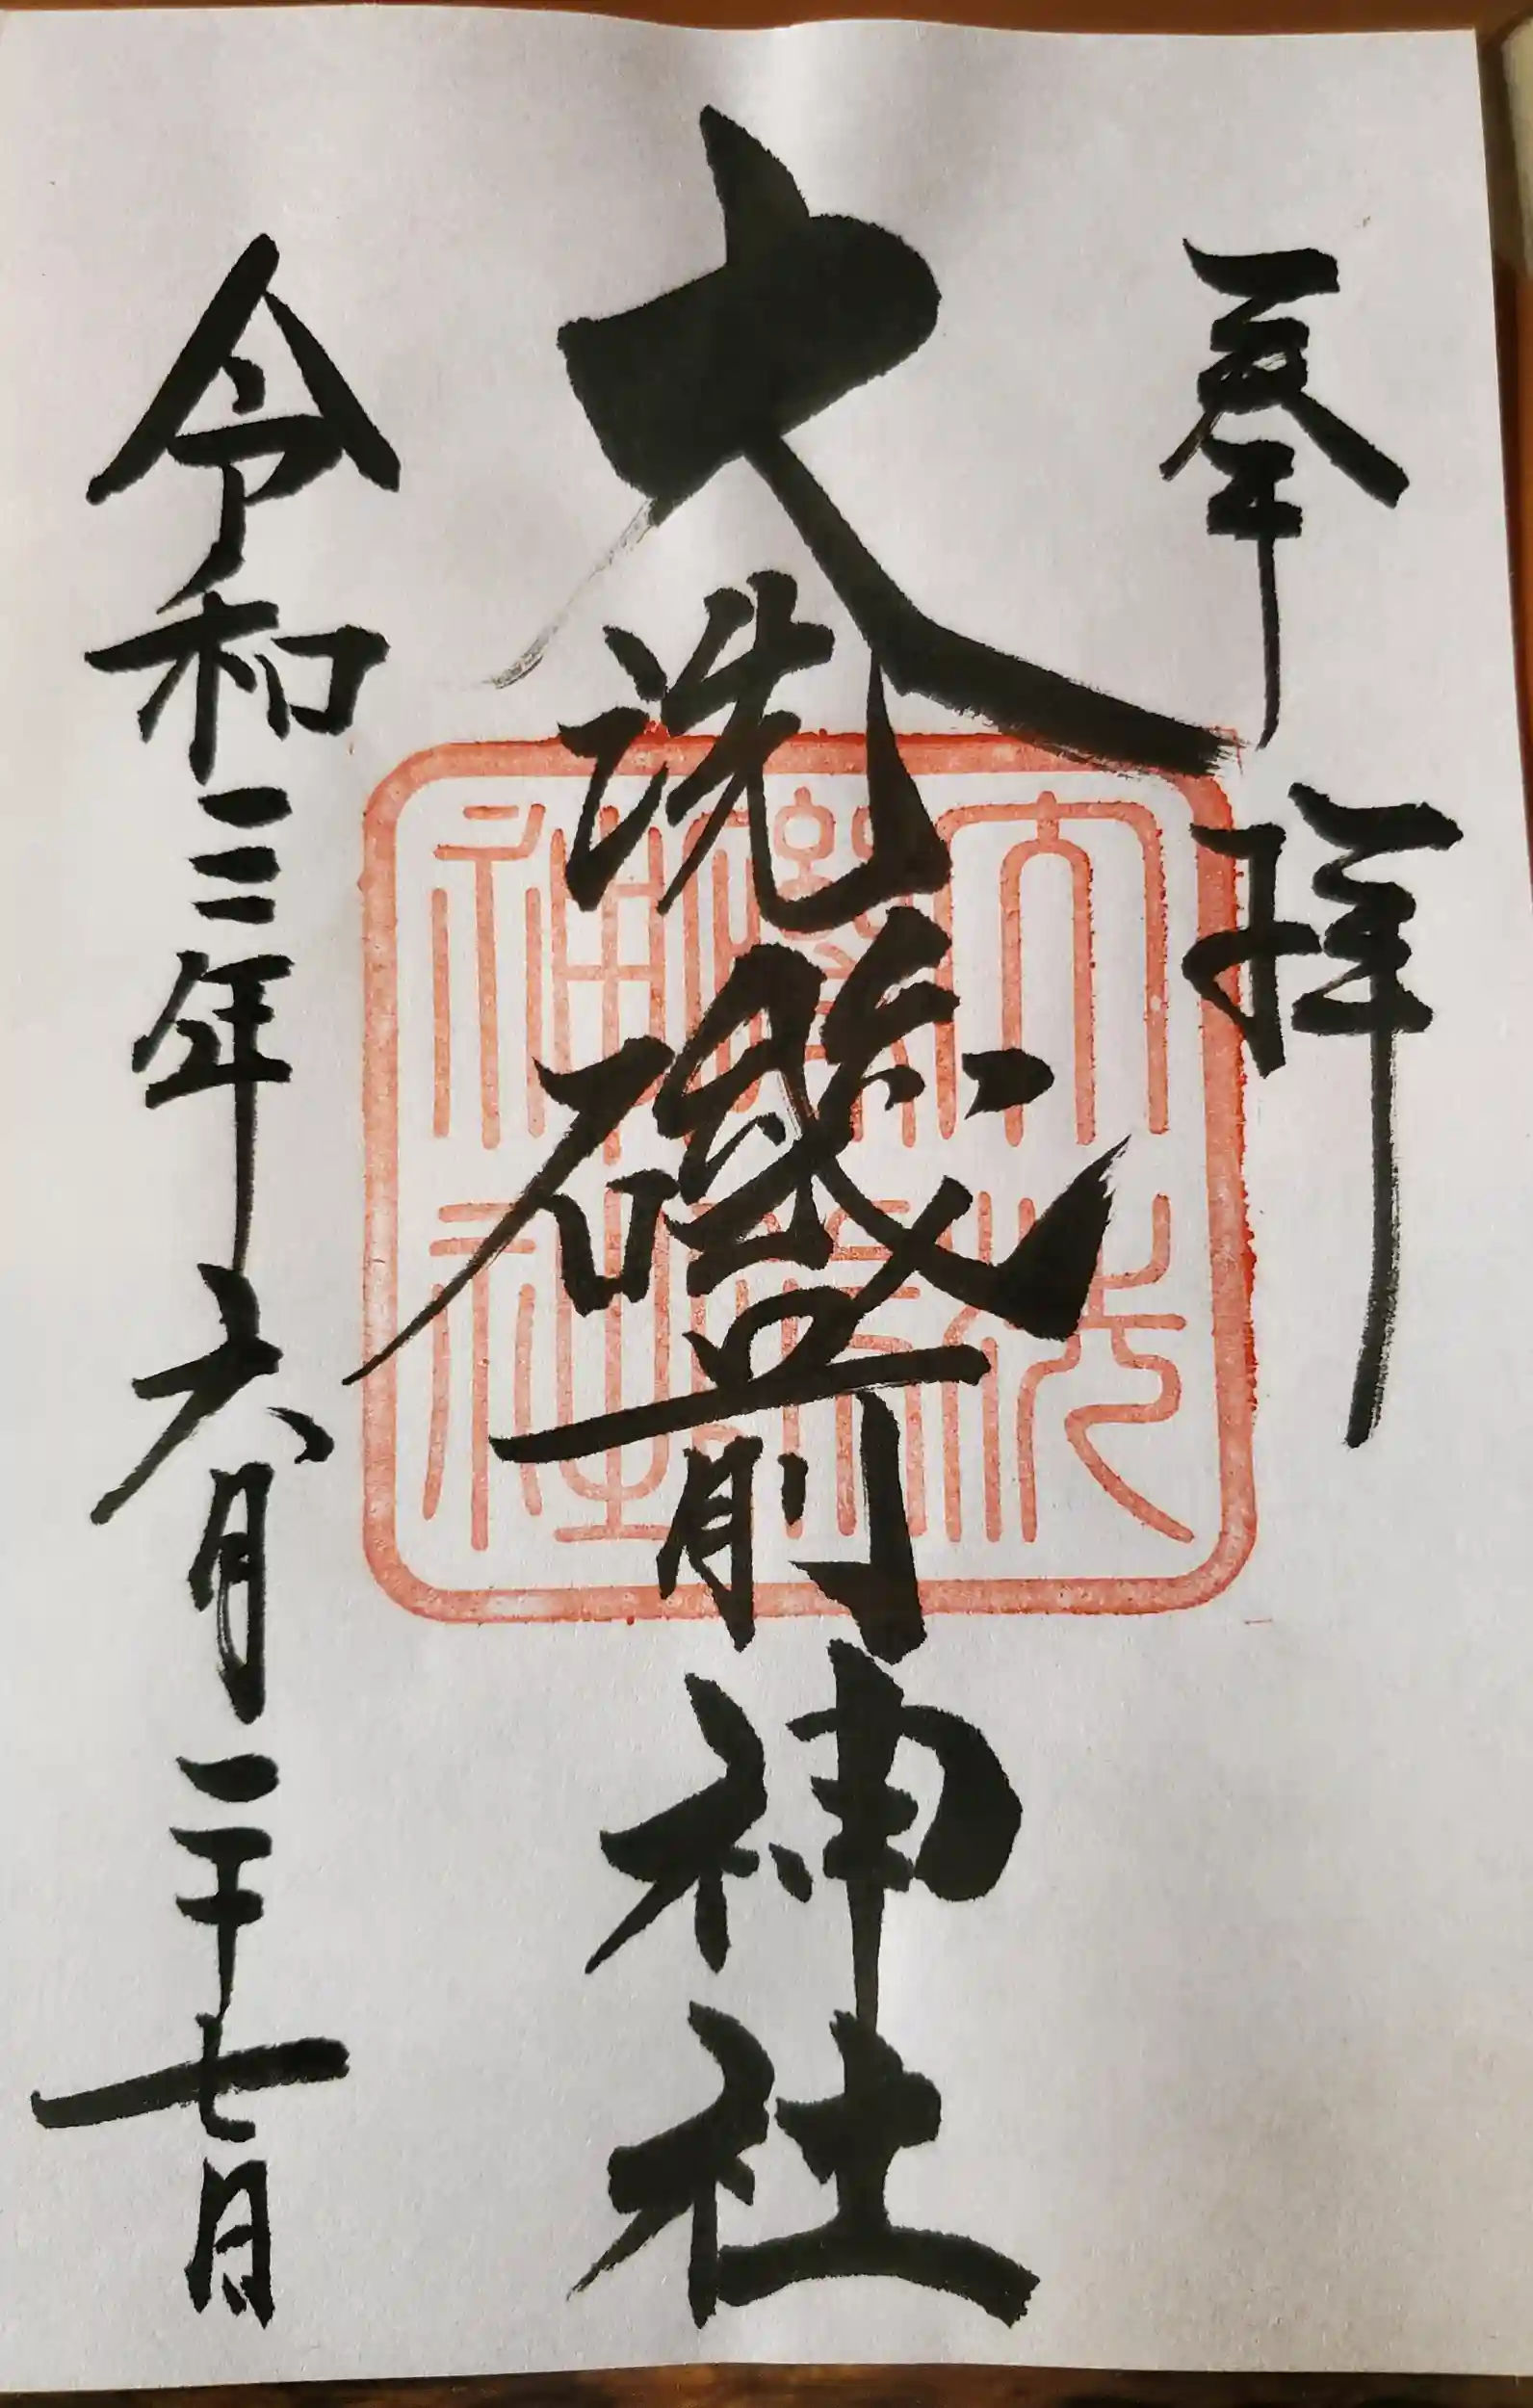 奉拝
大洗磯前神社
大洗磯前神社
令和三年六月二十七日